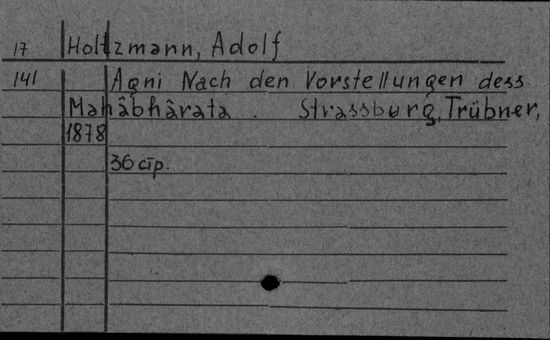 17 Holtzmann, Adolf
141 Agni Nach den Vorstellungen dess
Mahâbhârata. Strassburg, Trübner,
1878
36 стр.